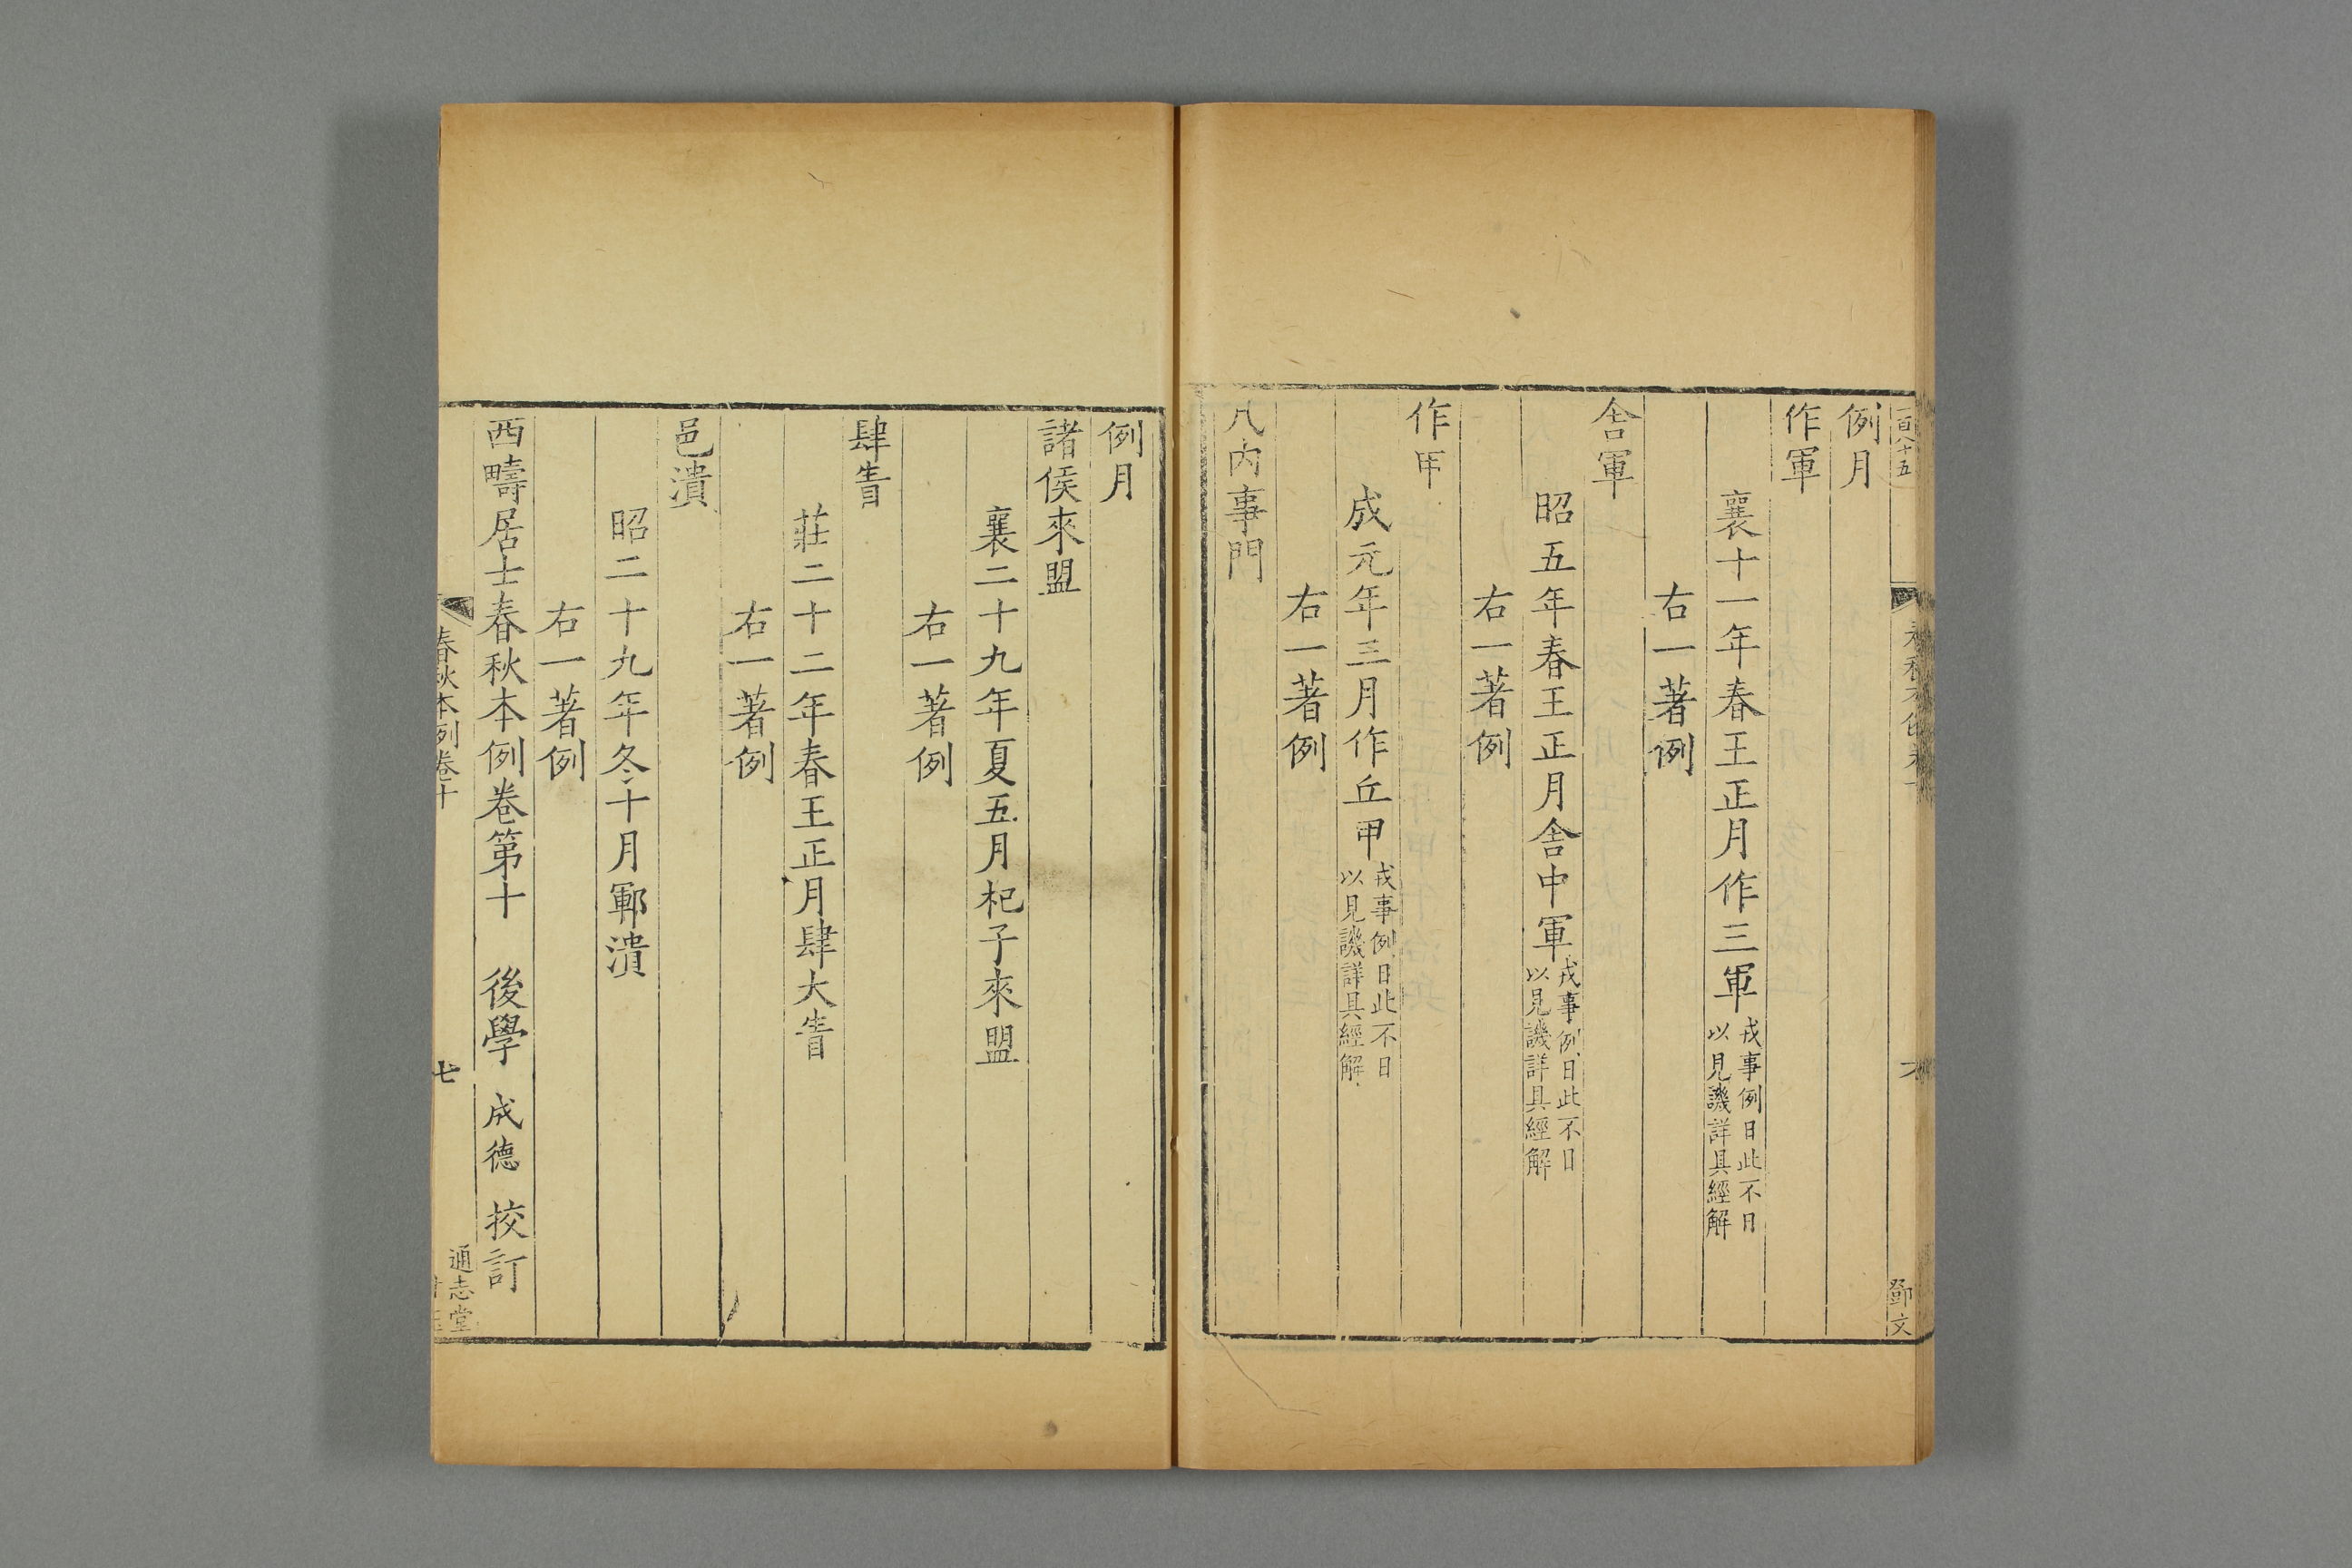 一百八十五
鄧文
例月
作軍
襄十一年春王正月作三軍戎事例日此不日
以見譏詳具經解
右一著例
舍軍
昭五年春王正月舍中軍戎事例日此不日
以見譏詳具經解
右一著例
作甲
成元年三月作丘甲戎事例日此不日
以見譏詳具經解
右一著例
八內事門
例月
諸侯來盟
襄二十九年夏五月杞子來盟
右一著例
肆眚
莊二十二年春王正月肆大眚
右一著例
邑潰
昭二十九年冬十月鄆潰
右一著例
西疇居士春秋本例卷第十 後學 成德 挍訂
春秋本例卷十 七
通志堂